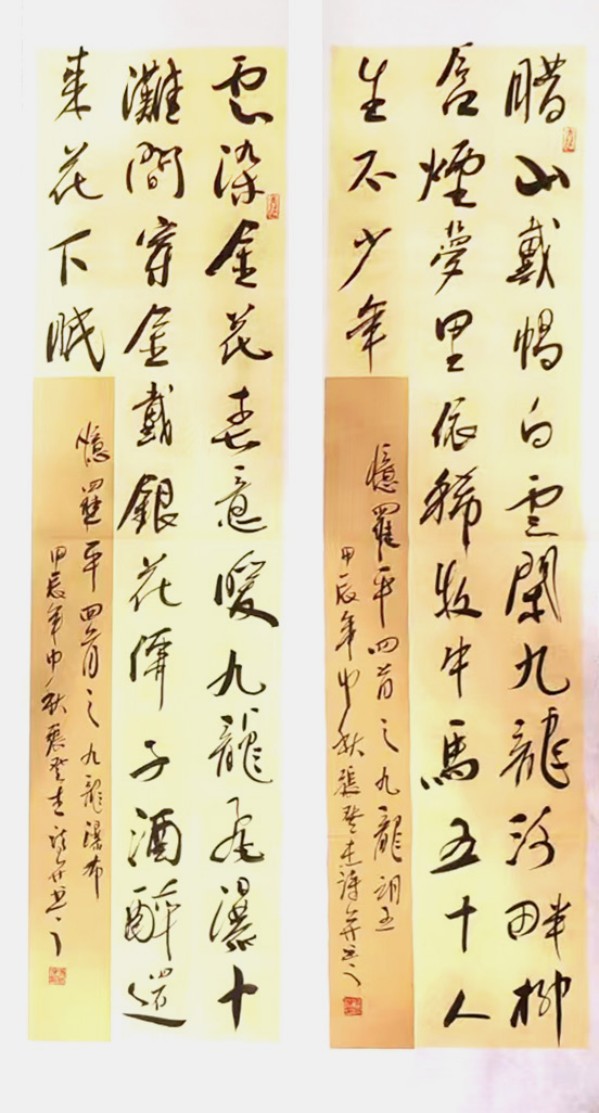 腊山戴帽白雲閑九龍河畔柳
含煙夢里依稀牧牛馬五十人
生不少年
憶羅平四首之九龍
甲辰年中秋張登
雲染金花春意暖九龍飛瀑十
灘間穿金戴銀花子酒醉還
來花下眠
憶羅平四首之九龍瀑布
甲辰年中秋